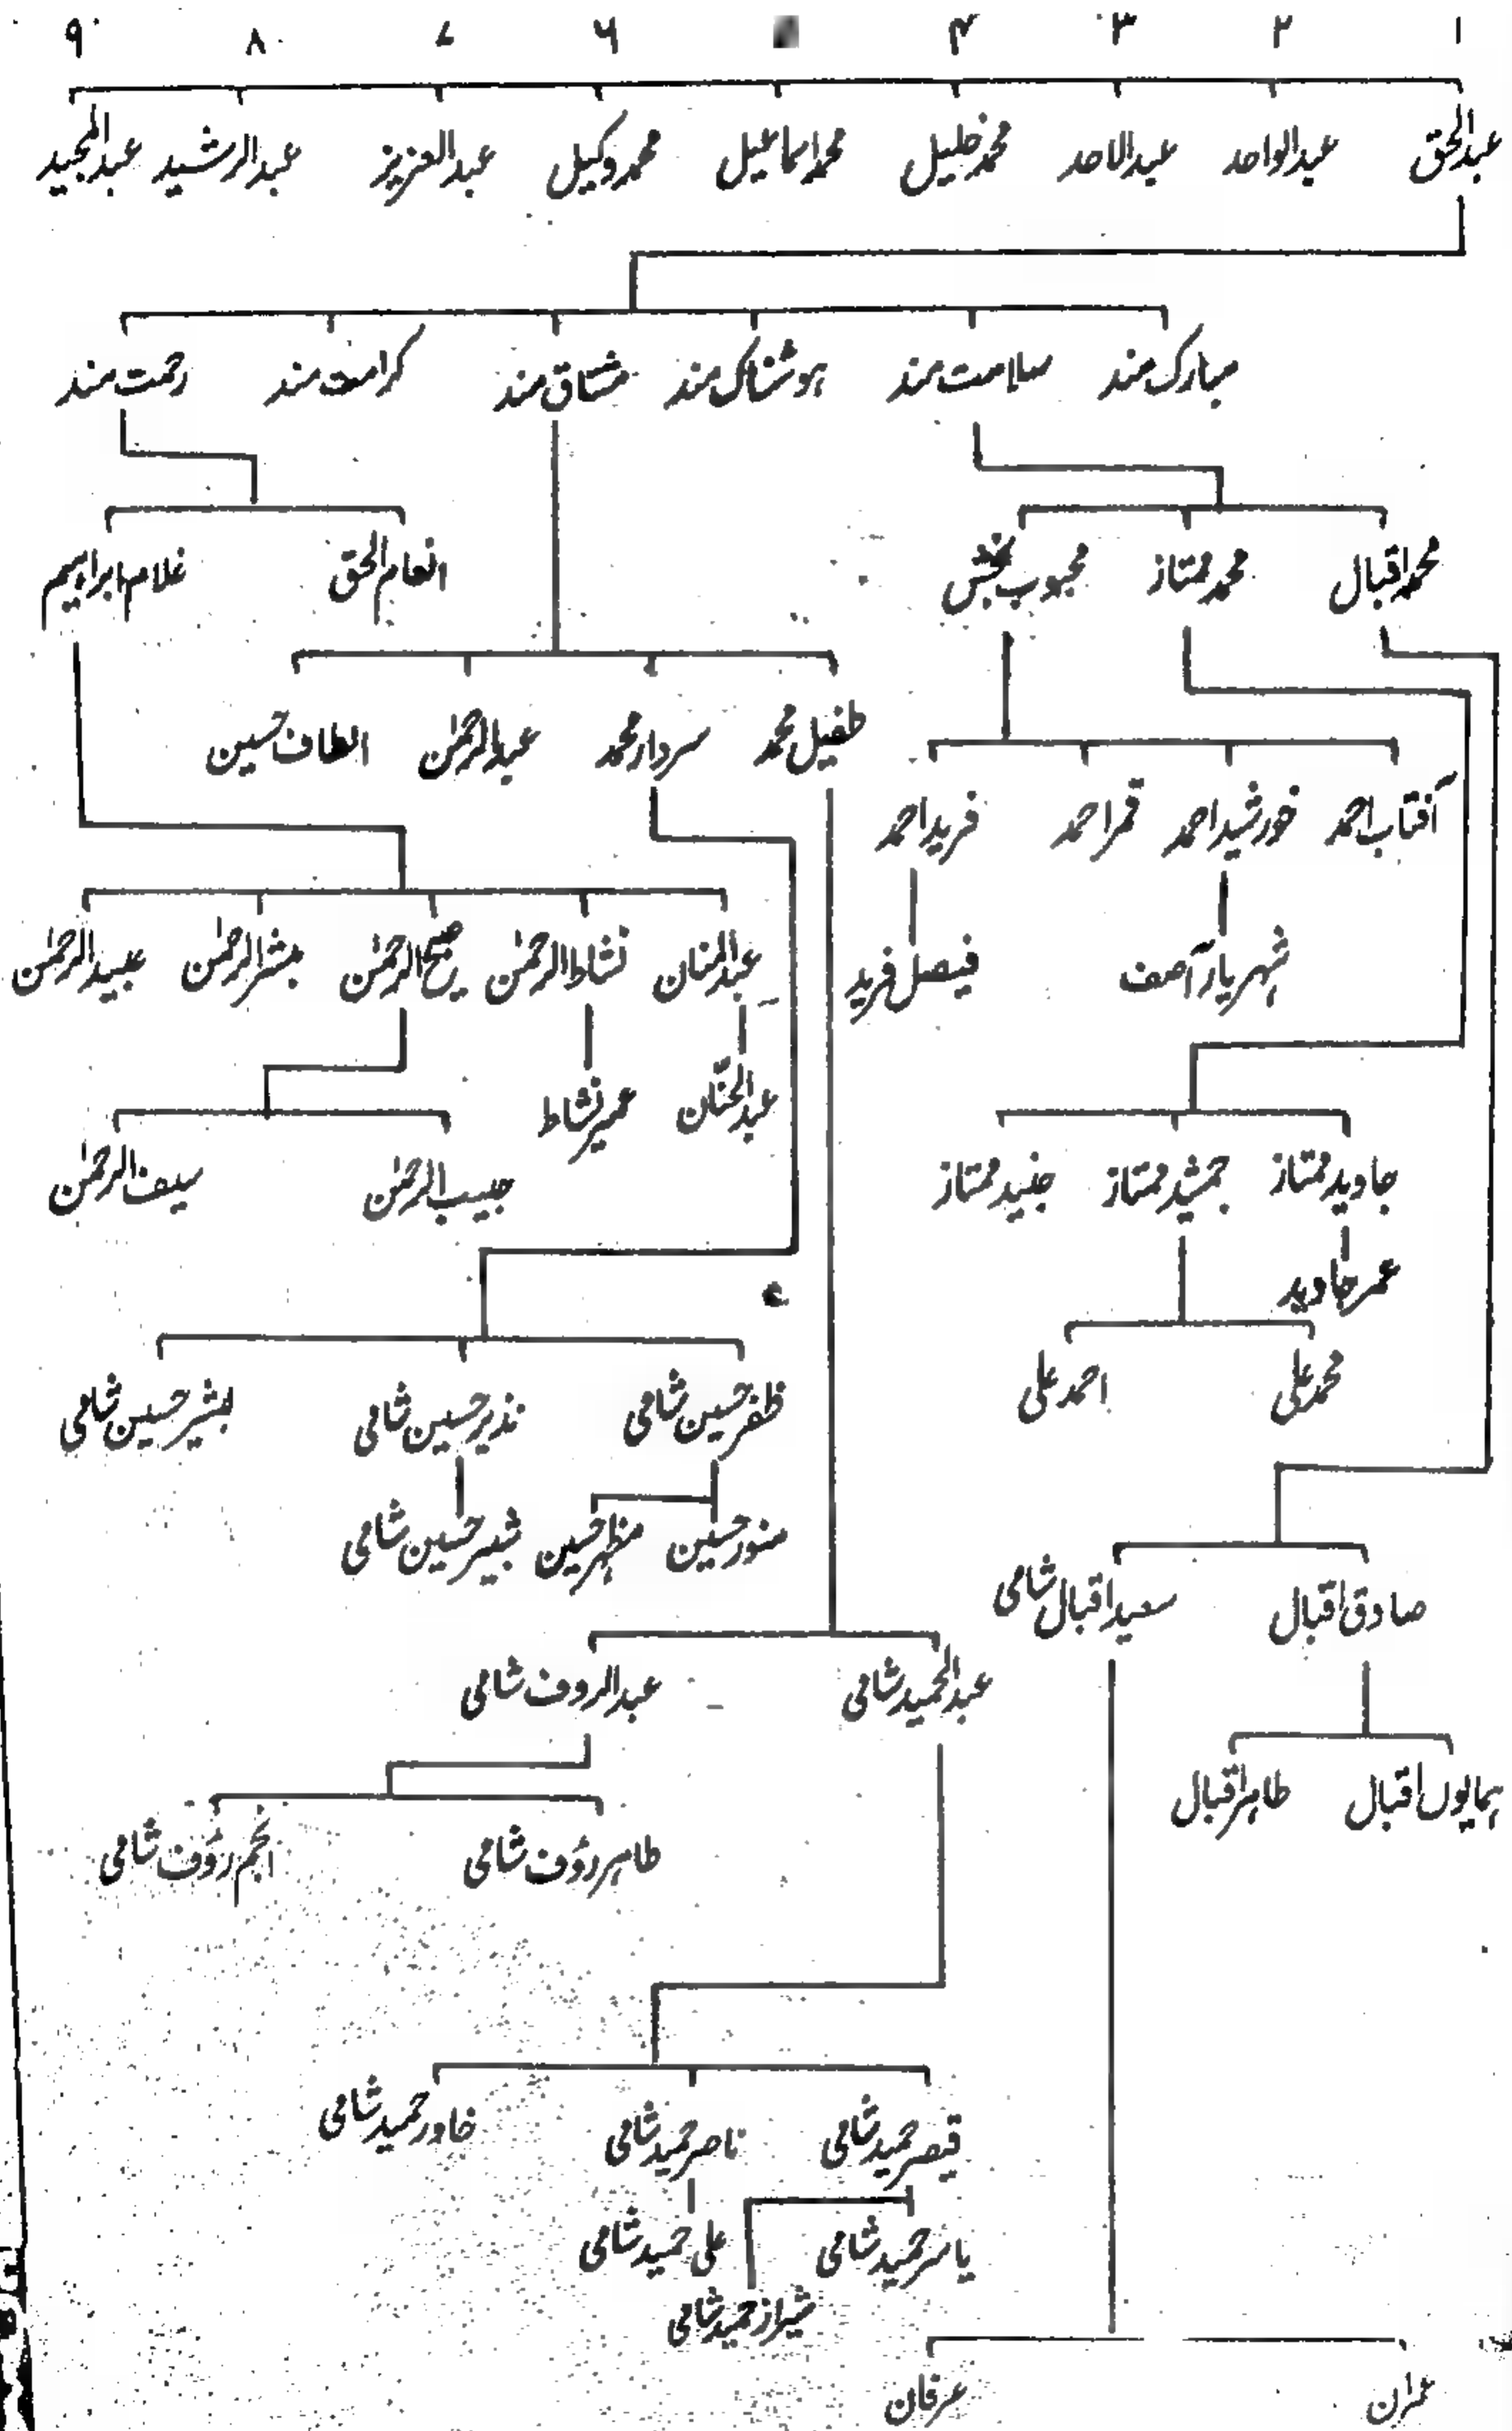 ۱ ۲ ۳ ۴ ۶ ۷ ۸ ۹
عبدالحق عبدالواحد عبدالاحد محمد خلیل محمد اسماعیل محمد وکیل عبدالعزیز عبدالرشید عبدالمجید
مبارک مند سلامت مند ہوشناک مند مشتاق مند کرامت مند رحمت مند
محمد اقبال محمد ممتاز محبوب بخش انعام الحق غلام ابراہیم
طفیل محمد سردار محمد عبدالرحمٰن الطاف حسین
آفتاب احمد خورشید احمد قمر احمد فرید احمد
شہریار آصف فیصل فرید عبدالمنان نشاط الرحمٰن صبیح الرحمٰن مبشر الرحمٰن عبید الرحمٰن
عبدالحنّان عمیر نشاط
جاوید ممتاز جمشید ممتاز جنید ممتاز حبیب الرحمٰن سیف الرحمٰن
عمر جاوید
محمد علی احمد علی ظفر حسین شامی نذیر حسین شامی بشیر حسین شامی
منور حسین مظہر حسین شبیر حسین شامی
صادق اقبال سعید اقبال شامی
عبدالحمید شامی عبدالروف شامی
ہمایوں اقبال طاہر اقبال
طاہر رؤف شامی انجم رؤف شامی
قیصر حمید شامی ناصر حمید شامی خاور حمید شامی
یاسر حمید شامی علی حمید شامی
شیراز حمید شامی
عمران عرفان